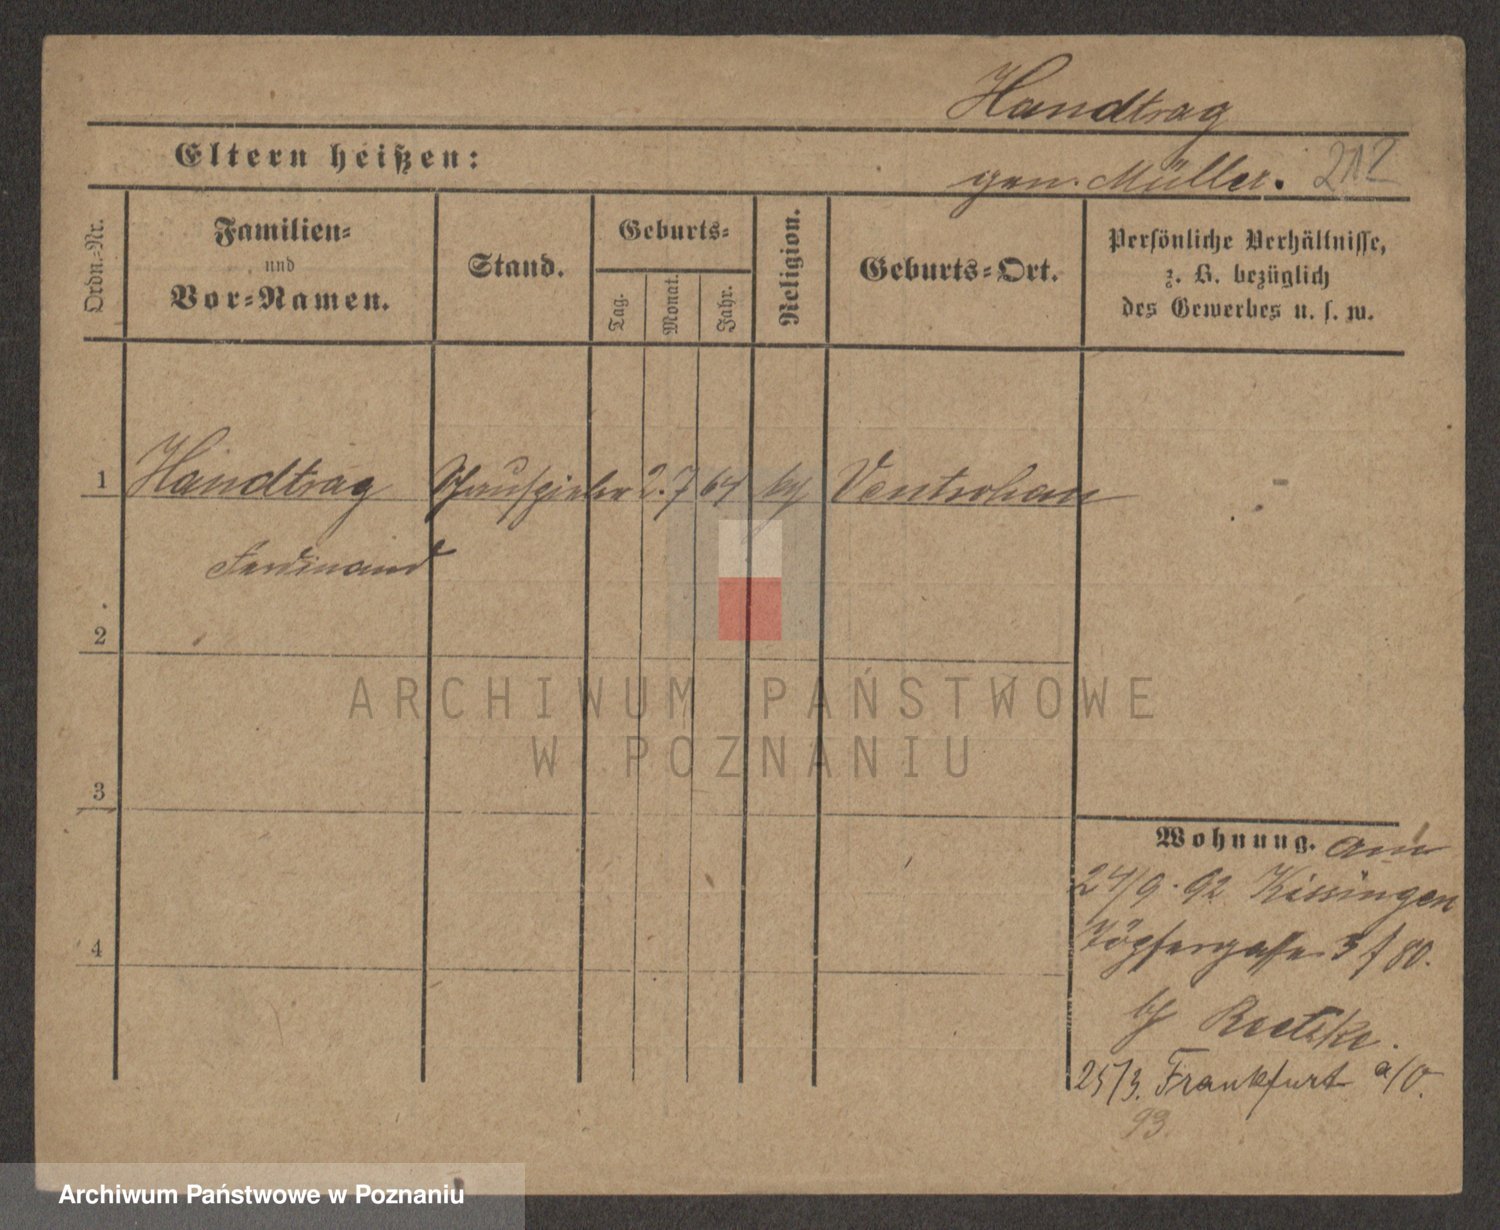 Handtrag
Eltern heißen:
gen. Müller. 212
Ordn.-Nr.
Familien-
und
Vor-Namen.
Stand.
Geburts-
Tag.
Monat.
Jahr.
Religion.
Geburts-Ort.
Persönliche Verhältnisse,
z. B. bezüglich
des Gewerbes u. s. w.
1 Handtrag Schauspieler 2. 7 64
Ferdinand
2
3
4
Wohnung.
24/9. 92 Kissingen
Töpfergasse 3
25/3. Frankfurt a/O.
93.
ARCHIWUM PAŃSTWOWE
W POZNANIU
Archiwum Państwowe w Poznaniu